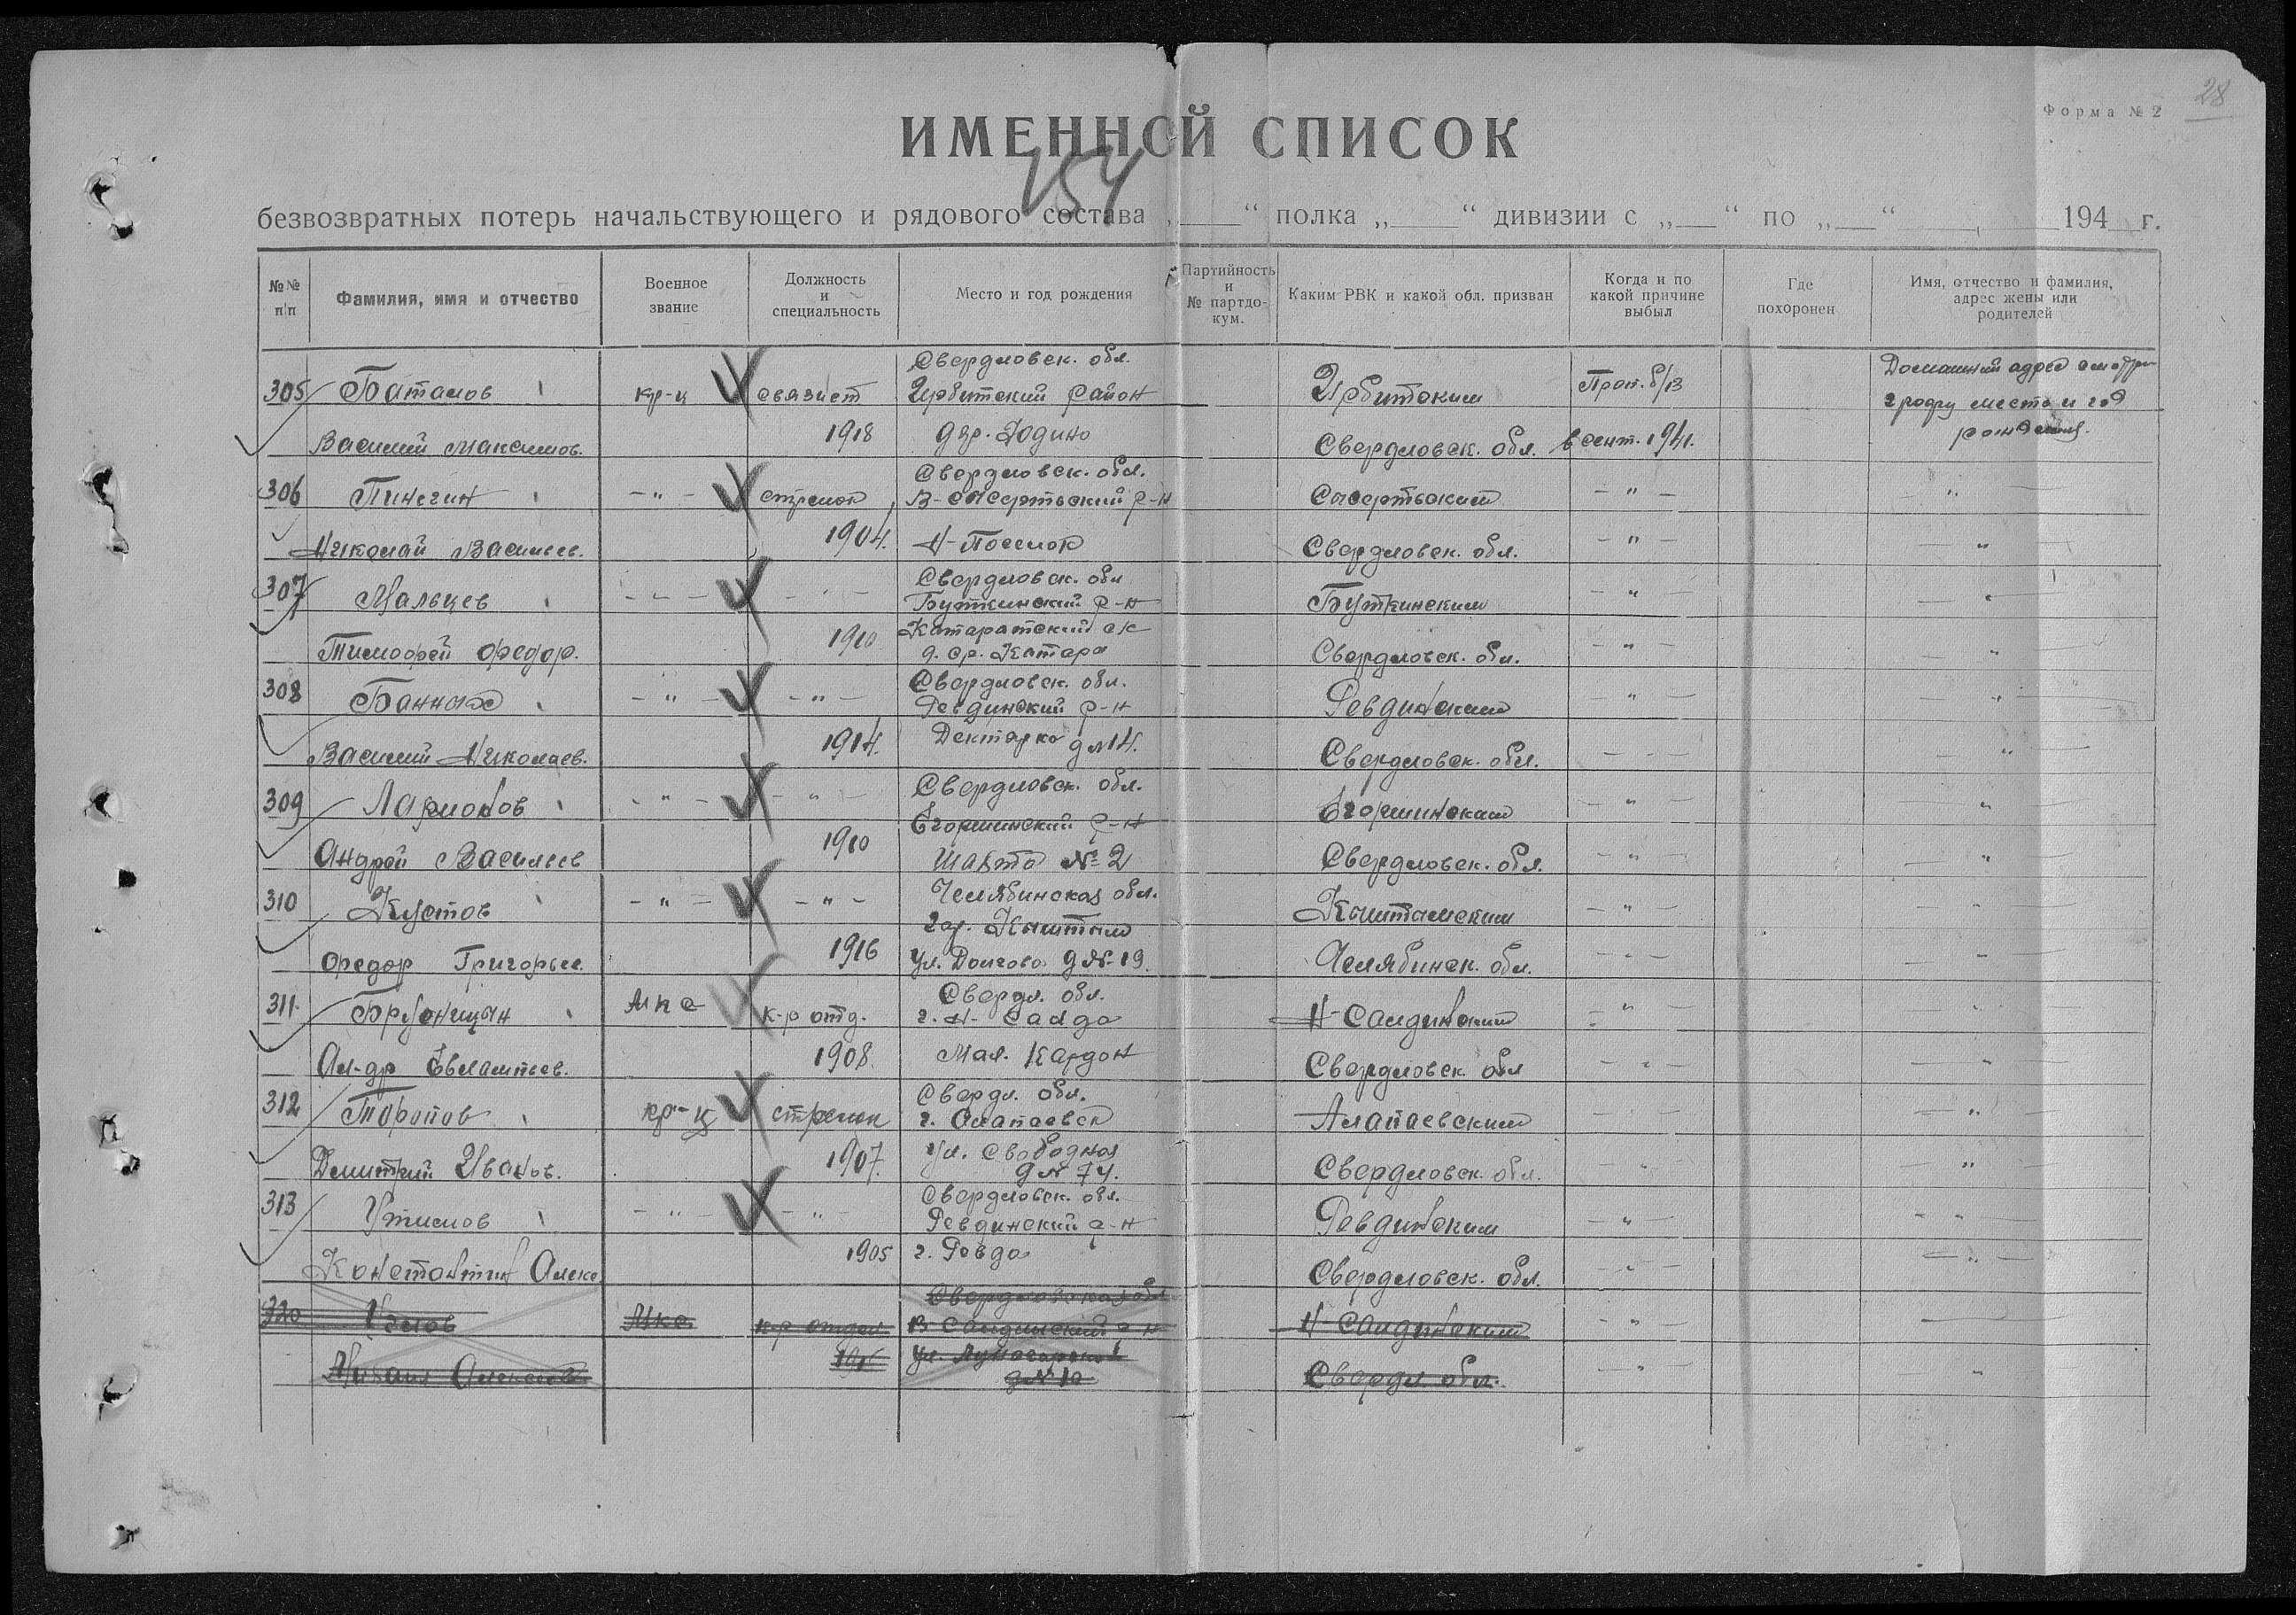 28
Форма № 2
ИМЕННОЙ СПИСОК
154
безвозвратных потерь начальствующего и рядового состава „ “ полка „ “ дивизии с „ “ по „ “ 194 г.
№№ п/п
Фамилия, имя и отчество
Военное звание
Должность и специальность
Место и год рождения
Партийность и № партдокум.
Каким РВК и какой обл. призван
Когда и по какой причине выбыл
Где похоронен
Имя, отчество и фамилия, адрес жены или родителей
Свердловск. обл.
305 Баталов кр-ц связист Ирбитский район Ирбитским Проп. б/в Домашний адрес смотри
графу место и год
Василий Максимов. 1918 дер. Юдино Свердловск. обл. в сент. 1941. рождения.
Свердловск. обл.
306 Пинегин -"- стрелок В-Сысертьский р-н Сысертьским -"- "
Николай Васильев. 1904. Н-Поселок Свердловск. обл. -"- "
Свердловск. обл
307 Мальцев -"- -"- Буткинский р-н Буткинским -"- "
1910 Катаратский с/с
Тимофей Федор. д. ср. Катара Свердловск. обл. -"- "
Свердловск. обл.
308 Банных -"- -"- Ревдинский р-н Ревдинским -"- "
Василий Николаев. 1914. д № 14. Свердловск. обл. -"- "
Свердловск. обл.
309 Ларионов -"- -"- Егоршинский р-н Егоршинским -"- "
Андрей Васильев 1910 Шахта № 2 Свердловск. обл. -"- "
Челябинская обл.
310 Кустов -"- -"- гор. Кыштым Кыштымским -"- "
Федор Григорьев. 1916 ул. Долгова д № 19. Челябинск. обл. -"- "
Свердл. обл.
311. Брусницын мкс к-р отд. г. Н-Салда Н-Салдинским -"- "
Ал-др Евлампиев. 1908. Мал. Кордон Свердловск. обл -"- "
Свердл. обл.
312 Торопов кр-ц стрелок г. Алапаевск Алапаевским -"- "
Дмитрий Иванов. 1907. ул. Свободная Свердловск. обл. -"- "
д № 74.
Свердловск. обл.
313 Утимов -"- -"- Ревдинский р-н Ревдинским -"- "
Константин Алекс. 1905 г. Ревда Свердловск. обл. -"- "
Свердловская обл
320 мкс к-р отдел В Салдинский р-н Н-Салдинским -"-
Михаил ул. Луначарского Свердл. обл. -"- "
д № 10